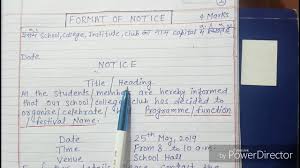 FORMAT OF NOTICE
4 Marks
School, College, Institute, club का नाम capital में
Date
NOTICE
Title / Heading
All the students/members are hereby informed
that our school/college/club has decided to
organise/celebrate Programme/function/
festival Name
Date 25th May, 2019
Time From 8 to 10 a.m
Venue School Hall
PowerDirector